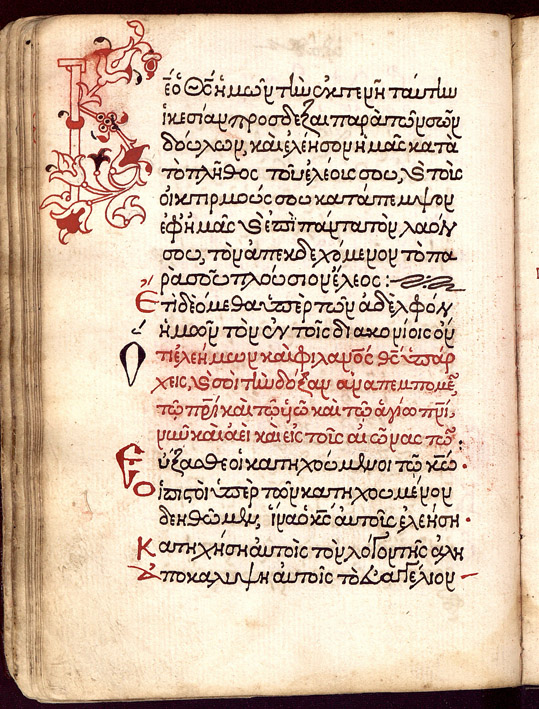 Κε ὁ Θς ἡμῶν τὴν ἐκτενῆ ταύτην
ἱκεσίαν προσδεξαι παρὰ τῶν σῶν
δούλων, καὶ ἐλέησον ἡμᾶς κατὰ
τὸ πλῆθος τοῦ ἐλέοις σου, ϗ τοὶς
οἰκτιρμούς σου κατάπεμψον
ἐφ ἡμᾶς ϗ ἐπὶ πάντα τὸν λαόν
σου, τὸν ἀπεκδεχόμενον τὸ πα
ρὰ σοῦ πλούσιον ἔλεος :
Ἔτι δεόμεθα ὑπὲρ τῶν ἀδελφόν
ἡμῶν τοὺν ἐν τοῖς διακονίοις ὅν
Ὅτι ἐλεήμων καὶ φιλανος θς ὑπάρ
χεις, ϗ σοὶ τὴν δόξαν ἀναπέμπομεν
τῶ πρὶ καὶ τῶ υἱῶ καὶ τῶ ἁγίω πνι,
νῦν καὶ ἀεὶ καὶ εἰς τοὶς αἰῶνας τῶν
Εὔξασθε οἱ κατηχούμενοι τῶ κω.
Οἱ πιστοὶ ὑπὲρ τῶν κατηχουμένον
δεηθῶμεν, ἵνα ὁ κς αὐτοὶς ἐλεήση.
Κατηχήση αὐτοὶς τὸν λόγον τῆς ἀλη
Ἀποκαλυψη αὐτοὶς τὸ εὐαγγέλιον